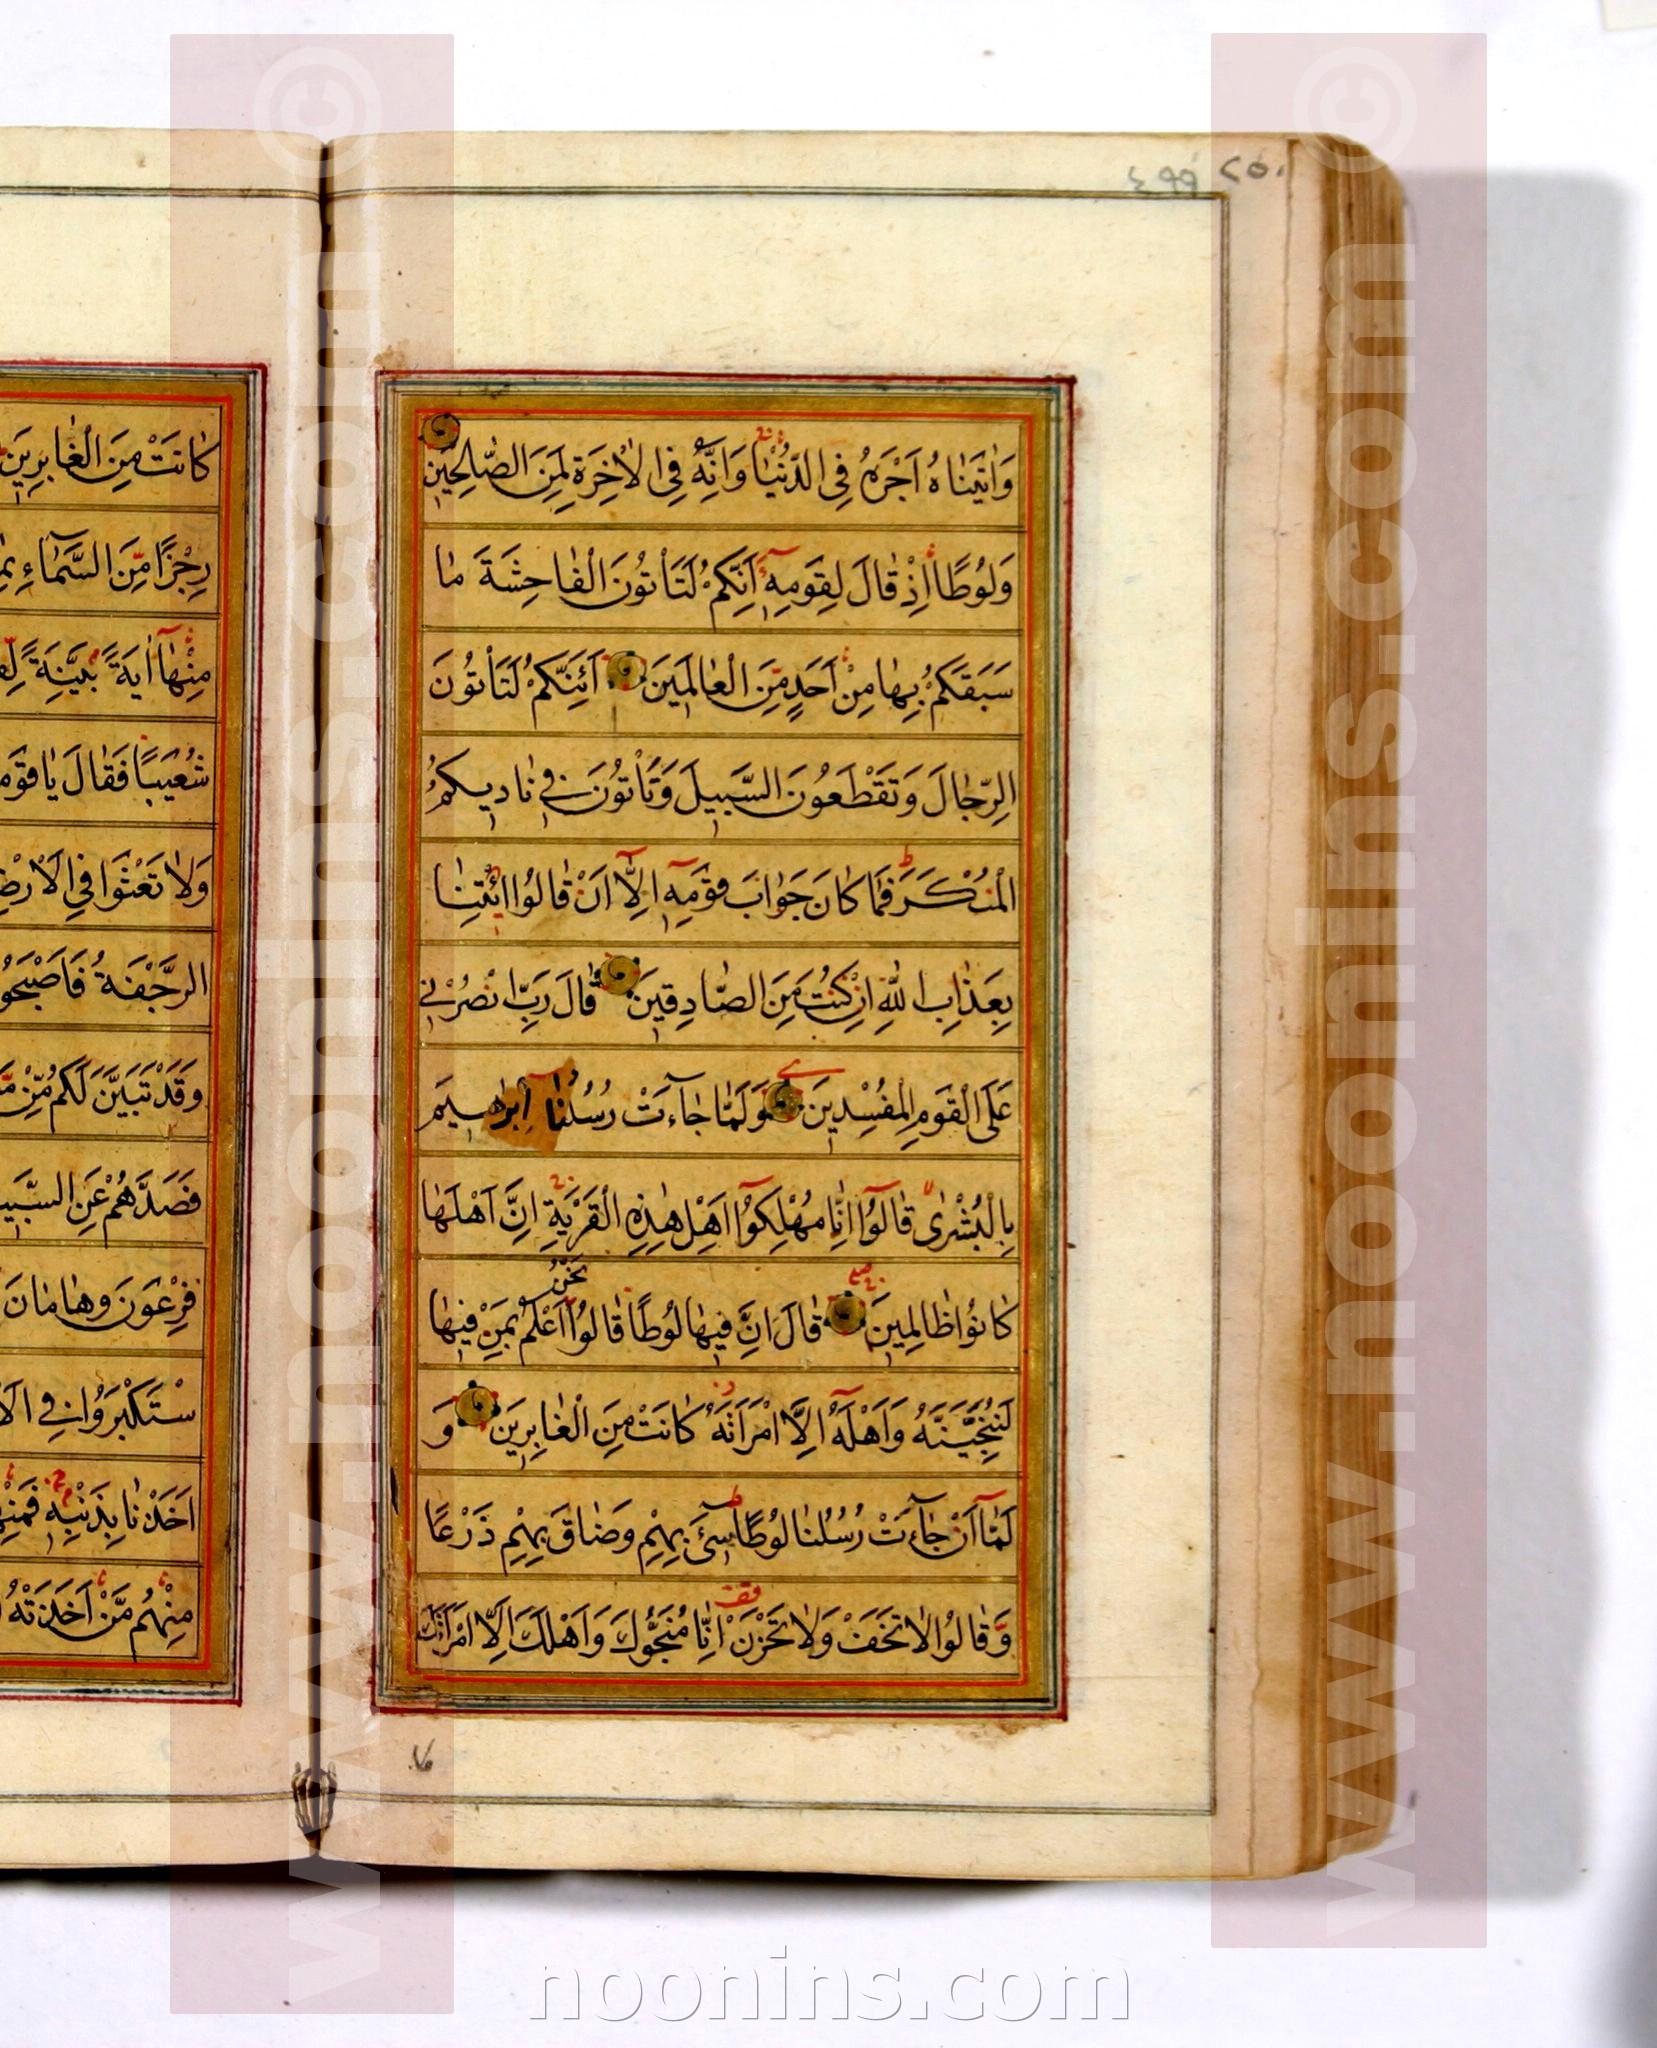 ٤٩٩ ٢٥٠
وَاٰتَيْنٰاهُ اَجْرَهُ فِى الدُّنْيٰا وَاِنَّهُ فِى الْاٰخِرَةِ لَمِنَ الصّٰالِحٖينَ
وَلُوطًا اِذْ قٰالَ لِقَوْمِهٖ اَئِنَّكُمْ لَتَأْتُونَ الْفٰاحِشَةَ مٰا
سَبَقَكُمْ بِهٰا مِنْ اَحَدٍ مِّنَ الْعٰالَمٖينَ اَئِنَّكُمْ لَتَأْتُونَ
الرِّجٰالَ وَتَقْطَعُونَ السَّبٖيلَ وَتَأْتُونَ فٖى نٰادٖيكُمُ
الْمُنْكَرَ فَمٰا كٰانَ جَوٰابَ قَوْمِهٖ اِلّٰا اَنْ قٰالُوا ائْتِنٰا
بِعَذٰابِ اللّٰهِ اِنْ كُنْتَ مِنَ الصّٰادِقٖينَ قٰالَ رَبِّ انْصُرْنٖى
عَلَى الْقَوْمِ الْمُفْسِدٖينَ وَلَمّٰا جٰاءَتْ رُسُلُنٰا اِبْرٰهٖيمَ
بِالْبُشْرٰى قٰالُوا اِنّٰا مُهْلِكُوا اَهْلِ هٰذِهِ الْقَرْيَةِ اِنَّ اَهْلَهٰا
كٰانُوا ظٰالِمٖينَ قٰالَ اِنَّ فٖيهٰا لُوطًا قٰالُوا نَحْنُ اَعْلَمُ بِمَنْ فٖيهٰا
لَنُنَجِّيَنَّهُ وَاَهْلَهُ اِلَّا امْرَاَتَهُ كٰانَتْ مِنَ الْغٰابِرٖينَ وَ
لَمّٰا اَنْ جٰاءَتْ رُسُلُنٰا لُوطًا سٖىءَ بِهِمْ وَضٰاقَ بِهِمْ ذَرْعًا
وَّقٰالُوا لٰا تَخَفْ وَلٰا تَحْزَنْ اِنّٰا مُنَجُّوكَ وَاَهْلَكَ اِلَّا امْرَاَتَكَ
كٰانَتْ مِنَ الْغٰابِرٖينَ
رِجْزًا مِّنَ السَّمٰاءِ
مِنْهٰا اٰيَةً بَيِّنَةً
شُعَيْبًا فَقٰالَ يٰا قَوْمِ
وَلٰا تَعْثَوْا فِى الْاَرْضِ
الرَّجْفَةُ فَاَصْبَحُوا
وَقَدْ تَبَيَّنَ لَكُمْ مِّنْ
فَصَدَّهُمْ عَنِ السَّبٖيلِ
فِرْعَوْنَ وَهٰامٰانَ
سْتَكْبَرُوا فِى
اَخَذْنٰا بِذَنْبِهٖ فَمِنْهُمْ
مِنْهُمْ مَّنْ اَخَذَتْهُ
© www.noonins.com
© www.noonins.com
noonins.com